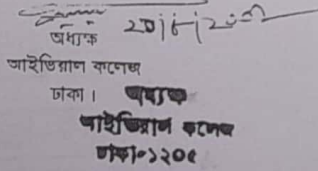 অধ্যক্ষ
আইডিয়াল কলেজ
ঢাকা।
অধ্যক্ষ
আইডিয়াল কলেজ
ঢাকা-১২০৫